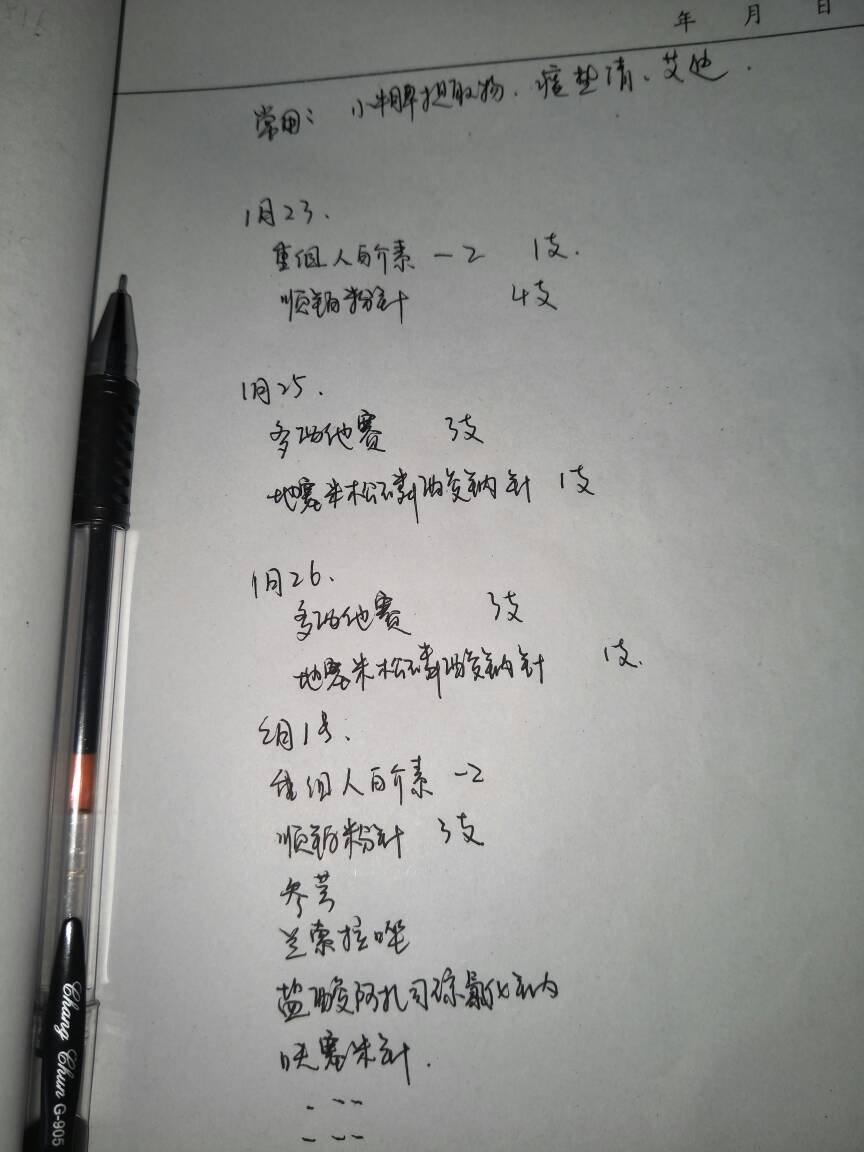 年 月 日
常用: 小牛脾提取物、痘垫清、艾迪.
1月23.
重组人白介素-2 1支.
顺铂粉针 4支
1月25.
多西他赛 3支
地塞米松磷酸钠针 1支
1月26.
多西他赛 3支
地塞米松磷酸钠针 1支.
2月1号.
重组人白介素-2
顺铂粉针 3支
参芎
兰索拉唑
盐酸阿扎司琼氯化钠
呋塞米针.
Chang Chun G-905